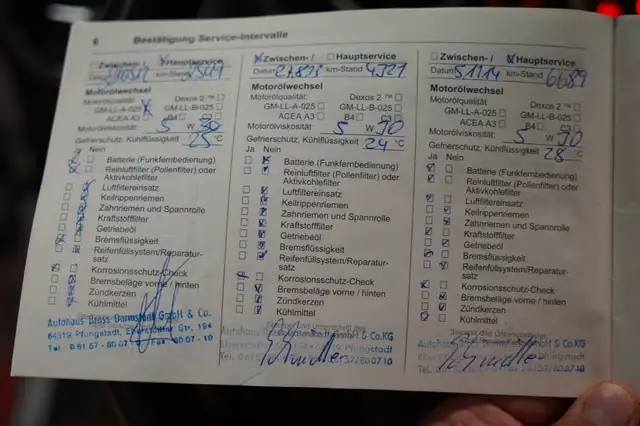 6 Bestätigung Service-Intervalle
Zwischen-/ Hauptservice
Datum km-Stand
Motorölwechsel
Motorölqualität: Dexos 2 ™
GM-LL-A-025 GM-LL-B-025
ACEA A3 B4 C3
Motorölviskosität: 5 W 30
Gefrierschutz, Kühlflüssigkeit 25 °C
Ja Nein
Batterie (Funkfernbedienung)
Reinluftfilter (Pollenfilter) oder
Aktivkohlefilter
Luftfiltereinsatz
Keilrippenriemen
Zahnriemen und Spannrolle
Kraftstofffilter
Getriebeöl
Bremsflüssigkeit
Reifenfüllsystem/Reparatur-
satz
Korrosionsschutz-Check
Bremsbeläge vorne / hinten
Zündkerzen
Kühlmittel
Autohaus Brass Darmstadt GmbH & Co.
64319 Pfungstadt, Eberstädter Str. 194
Tel. 0 61 57 - 80 07 Fax - 80 07 10
Zwischen-/ Hauptservice
Datum km-Stand
Motorölwechsel
Motorölqualität: Dexos 2 ™
GM-LL-A-025 GM-LL-B-025
ACEA A3 B4 C3
Motorölviskosität: 5 W
Gefrierschutz, Kühlflüssigkeit 24 °C
Ja Nein
Batterie (Funkfernbedienung)
Reinluftfilter (Pollenfilter) oder
Aktivkohlefilter
Luftfiltereinsatz
Keilrippenriemen
Zahnriemen und Spannrolle
Kraftstofffilter
Getriebeöl
Bremsflüssigkeit
Reifenfüllsystem/Reparatur-
satz
Korrosionsschutz-Check
Bremsbeläge vorne / hinten
Zündkerzen
Kühlmittel
Zwischen-/ Hauptservice
Datum 5.11.14 km-Stand 6689
Motorölwechsel
Motorölqualität Dexos 2 ™
GM-LL-A-025 GM-LL-B-025
ACEA A3 B4 C3
Motorölviskosität: 5 W
Gefrierschutz, Kühlflüssigkeit 28 °C
Ja Nein
Batterie (Funkfernbedienung)
Reinluftfilter (Pollenfilter) oder
Aktivkohlefilter
Luftfiltereinsatz
Keilrippenriemen
Zahnriemen und Spannrolle
Kraftstofffilter
Getriebeöl
Bremsflüssigkeit
Reifenfüllsystem/Reparatur-
satz
Korrosionsschutz-Check
Bremsbeläge vorne / hinten
Zündkerzen
Kühlmittel